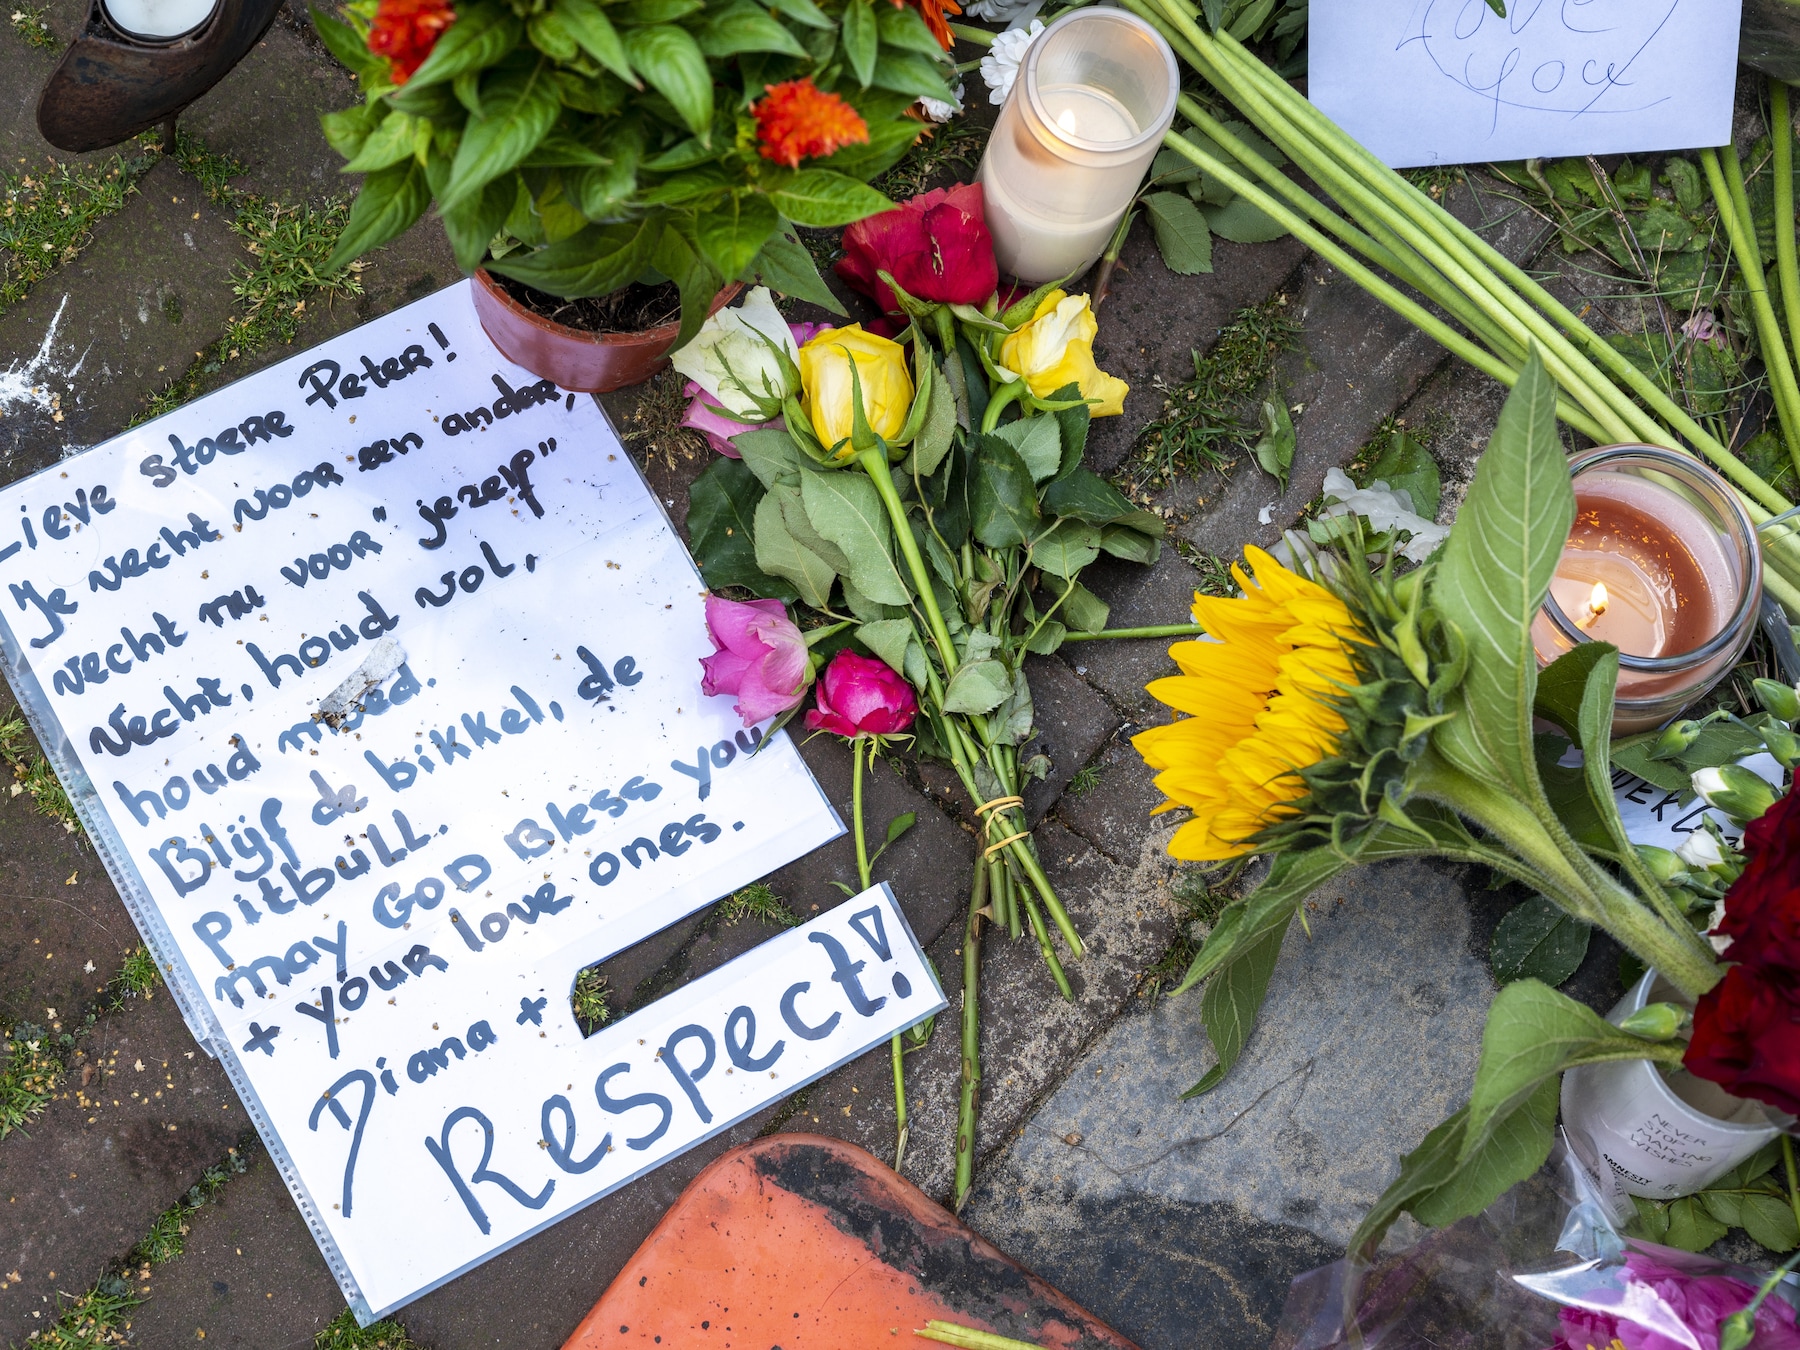 Lieve stoere Peter!
Je vecht voor een ander,
vecht nu voor "jezelf"
vecht, houd vol,
houd moed.
Blijf de bikkel, de
pitbull.
may GOD Bless you
+ your love ones.
Diana +
Respect!
Love
you
NEVER
STOP
MAKING
WISHES
AMNESTY